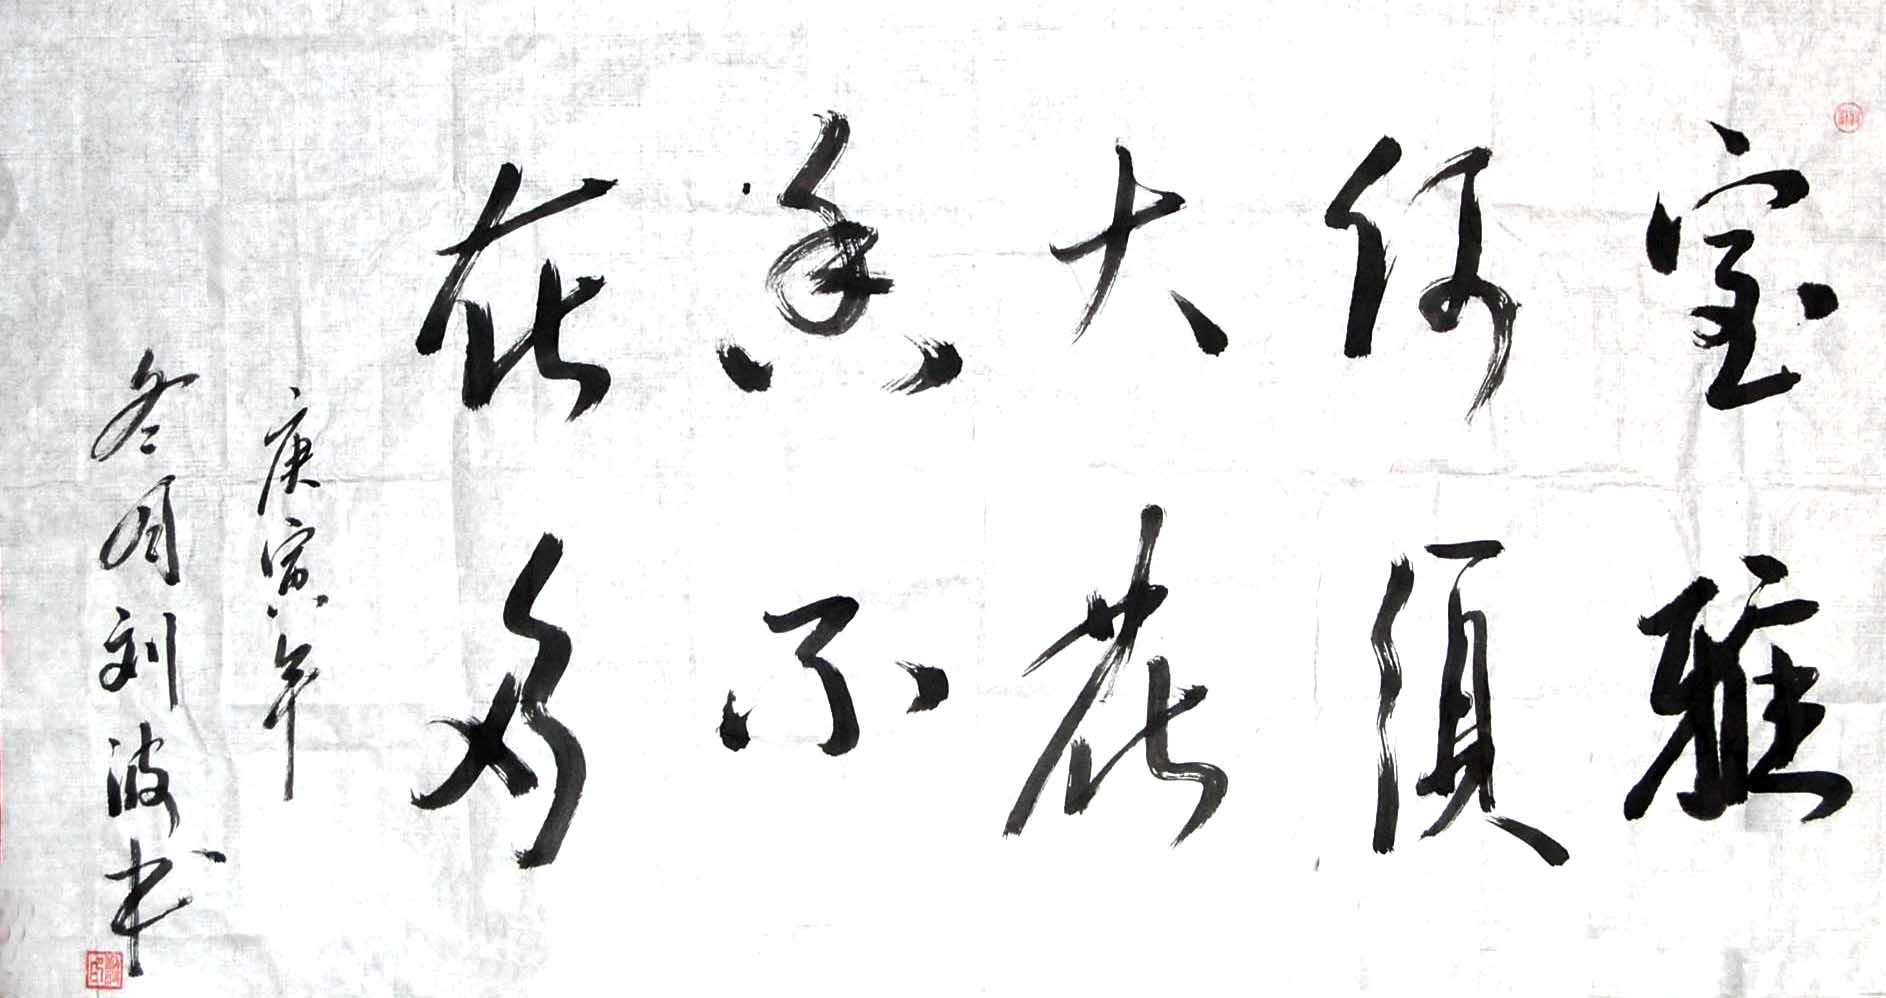 室雅
何須
大花
香不
在多
庚寅年
冬月刘波书